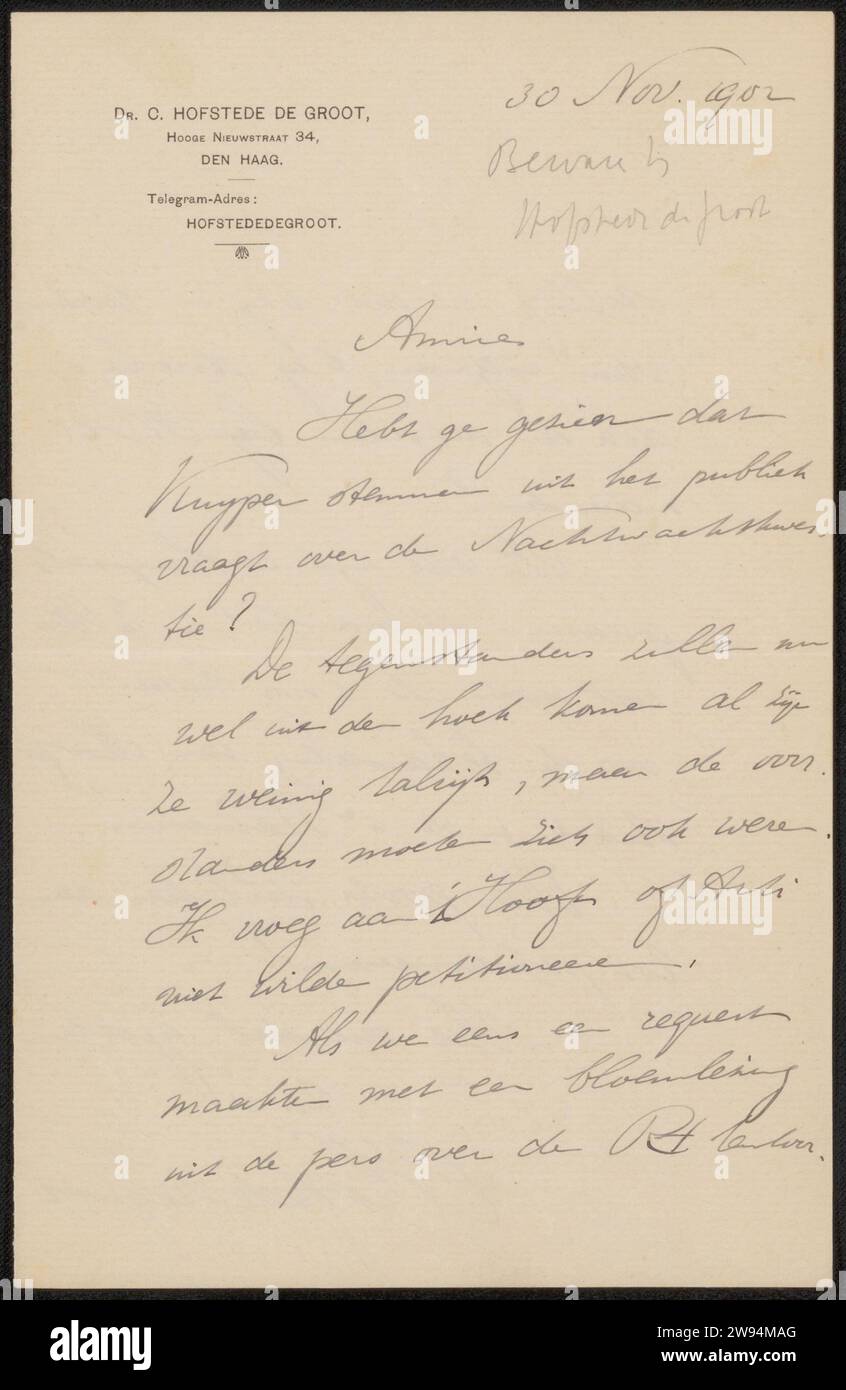 DR. C. HOFSTEDE DE GROOT,
HOOGE NIEUWSTRAAT 34,
DEN HAAG.
Telegram-Adres:
HOFSTEDEDEGROOT.
30 Nov. 1902
Hofstede de Groot
Amice
Hebt ge gezien dat
Kuyper stemmen uit het publiek
vraagt over de Nachtwachtkwes-
tie?
De tegenstanders zullen nu
wel uit den hoek komen al zijn
ze weinig talrijk, maar de voor-
standers moeten zich ook weren.
Ik vroeg aan 't Hooft of Arti
niet wilde petitioneeren.
Als we eens een request
maakten met een bloemlezing
uit de pers over de
alamy
Image ID: 2W94MAG
www.alamy.com